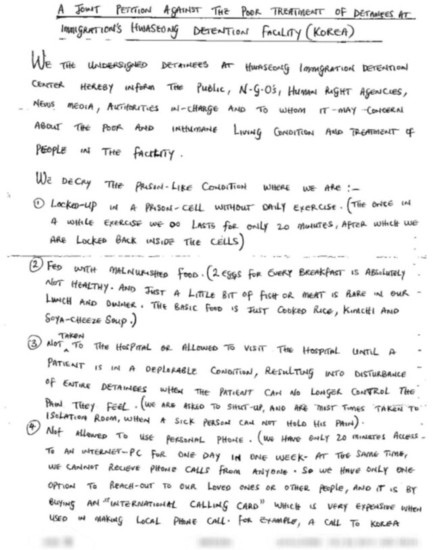 A JOINT PETITION AGAINST THE POOR TREATMENT OF DETAINEES AT
IMMIGRATION'S HWASEONG DETENTION FACILITY (KOREA)
WE THE UNDERSIGNED DETAINEES AT HWASEONG IMMIGRATION DETENTION
CENTER HEREBY INFORM THE PUBLIC, N-G-O's, HUMAN RIGHT AGENCIES,
NEWS MEDIA, AUTHORITIES IN-CHARGE AND TO WHOM IT-MAY-CONCERN
ABOUT THE POOR AND INHUMANE LIVING CONDITION AND TREATMENT OF
PEOPLE IN THE FACILITY.
WE DECRY THE PRISON-LIKE CONDITION WHERE WE ARE :-
① LOCKED-UP IN A PRISON-CELL WITHOUT DAILY EXERCISE. (THE ONCE IN
A WHILE EXERCISE WE DO LASTS FOR ONLY 20 MINUTES, AFTER WHICH WE
ARE LOCKED BACK INSIDE THE CELLS)
② FED WITH MALNURISHED FOOD. (2 EGGS FOR EVERY BREAKFAST IS ABSOLUTELY
NOT HEALTHY. AND JUST A LITTLE BIT OF FISH OR MEAT IS RARE IN OUR
LUNCH AND DINNER. THE BASIC FOOD IS JUST COOKED RICE, KIMCHI AND
SOYA-CHEEZE SOUP.)
③ NOT TAKEN TO THE HOSPITAL OR ALLOWED TO VISIT THE HOSPITAL UNTIL A
PATIENT IS IN A DEPLORABLE CONDITION, RESULTING INTO DISTURBANCE
OF ENTIRE DETAINEES WHEN THE PATIENT CAN NO LONGER CONTROL THE
PAIN THEY FEEL. (WE ARE ASKED TO SHUT-UP, AND ARE MOST TIMES TAKEN TO
ISOLATION ROOM, WHEN A SICK PERSON CAN NOT HOLD HIS PAIN).
④ NOT ALLOWED TO USE PERSONAL PHONE. (WE HAVE ONLY 20 MINUTES ACCESS-
TO AN INTERNET-PC FOR ONE DAY IN ONE WEEK. AT THE SAME TIME,
WE CANNOT RECIEVE PHONE CALLS FROM ANYONE. SO WE HAVE ONLY ONE
OPTION TO REACH-OUT TO OUR LOVED ONES OR OTHER PEOPLE, AND IT IS BY
BUYING AN "INTERNATIONAL CALLING CARD" WHICH IS VERY EXPENSIVE WHEN
USED IN MAKING LOCAL PHONE CALL. FOR EXAMPLE, A CALL TO KOREA